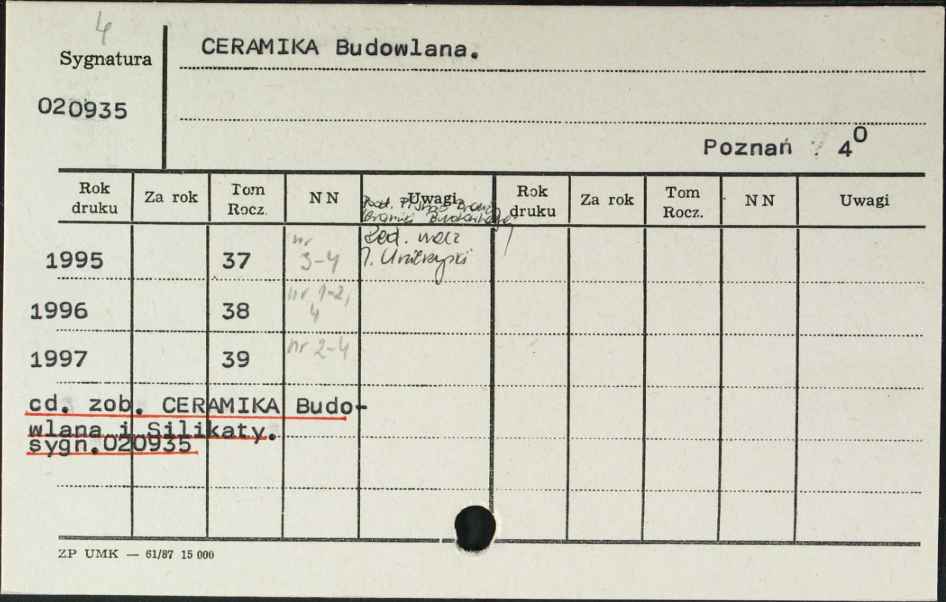 4
Sygnatura
CERAMIKA Budowlana.
020935
Poznań 4⁰
Rok druku Za rok Tom Rocz. NN Uwagi Rok druku Za rok Tom Rocz. NN Uwagi
Red. nacz
1995 37 nr 3-4 J.
1996 38 nr 1-2, 4
1997 39 nr 2-4
cd. zob. CERAMIKA Budo-
wlana i Silikaty.
sygn.020935
ZP UMK — 61/87 15 000